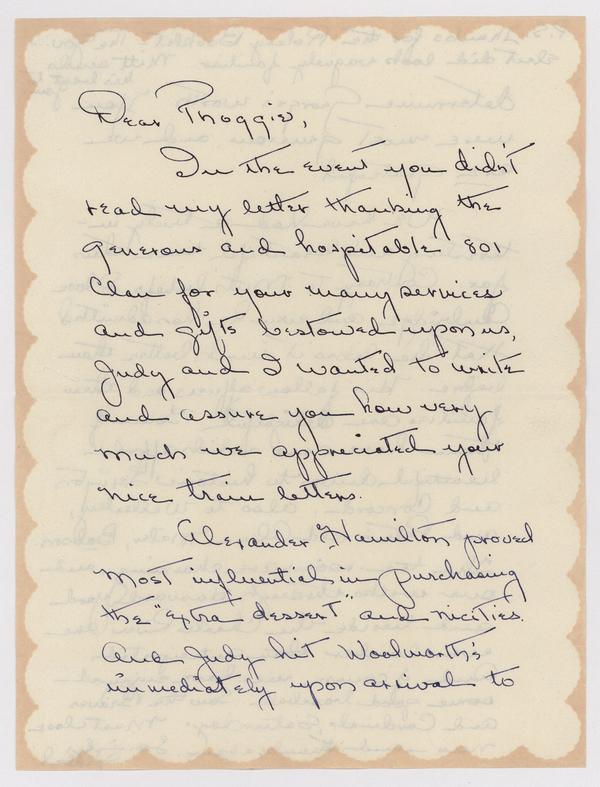 Dear Thoggie,
In the event you didn't
read my letter thanking the
generous and hospitable 801
Clan for your many services
and gifts bestowed upon us,
Judy and I wanted to write
and assure you how very
much we appreciated your
nice train letters.
Alexander Hamilton proved
most influential in purchasing
the "extra dessert" and nicities.
And Judy hit Woolworth's
immediately upon arrival to